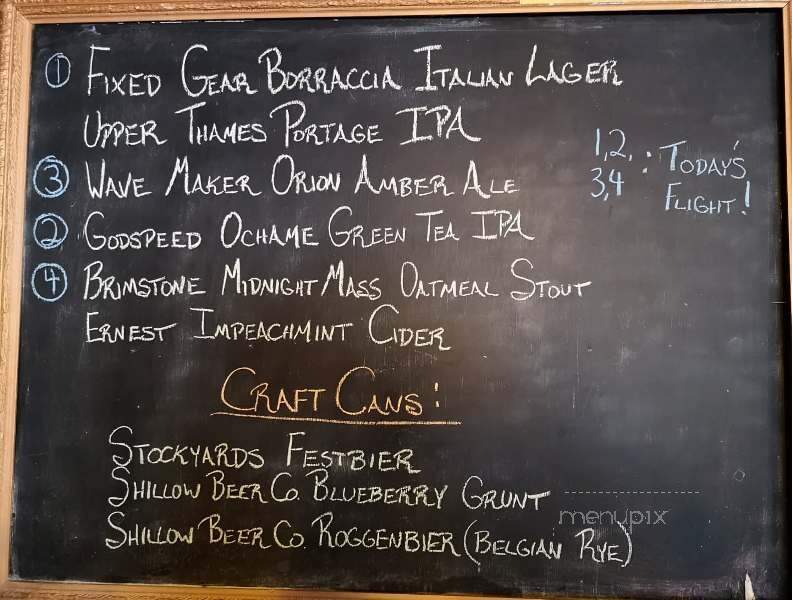 ① Fixed Gear Borraccia Italian Lager
Upper Thames Portage IPA
③ Wave Maker Orion Amber Ale
② Godspeed Ochame Green Tea IPA
④ Brimstone Midnight Mass Oatmeal Stout
Ernest Impeachmint Cider
1, 2, : Today's
3, 4 Flight!
Craft Cans:
Stockyards Festbier
Shillow Beer Co. Blueberry Grunt
Shillow Beer Co. Roggenbier (Belgian Rye)
menupix